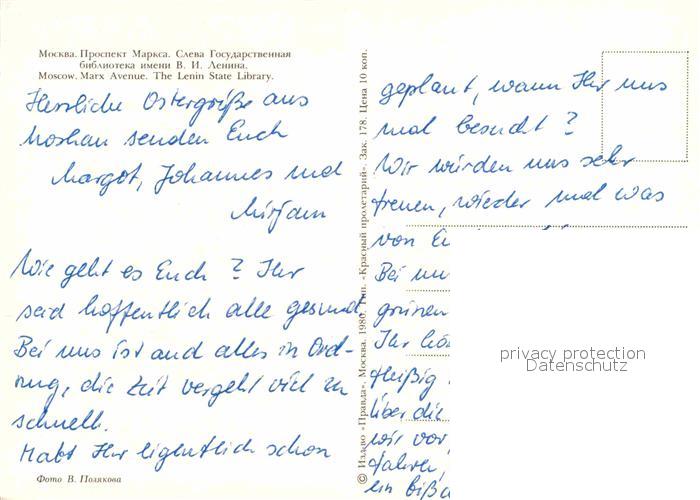 Москва. Проспект Маркса. Слева Государственная
библиотека имени В. И. Ленина.
Moscow. Marx Avenue. The Lenin State Library.
Herzliche Ostergrüße aus
Moskau senden Euch
Margot, Johannes und
Mirjam
Wie geht es Euch? Ihr
seid hoffentlich alle gesund.
Bei uns ist auch alles in Ord-
nung, die Zeit vergeht viel zu
schnell.
Habt Ihr eigentlich schon
Фото В. Полякова
© Изд-во «Правда». Москва. 1980. Тип. «Красный пролетарий». Зак. 178. Цена 10 коп.
geplant, wann Ihr uns
mal besucht?
Wir würden uns sehr
freuen, wieder mal was
von
Bei
grünen
Ihr
fleißig
über die
wir vor
fahren,
ein
privacy protection
Datenschutz